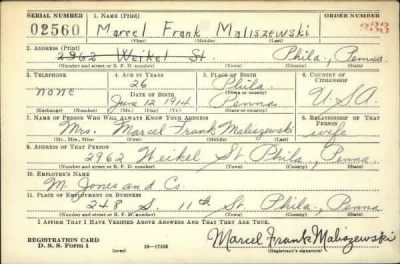 SERIAL NUMBER 1. NAME (Print) ORDER NUMBER
02560 Marcel Frank Maliszewski 233
(First) (Middle) (Last)
2. ADDRESS (Print)
2962 Weikel St. Phila., Penna.
(Number and street or R. F. D. number) (Town) (County) (State)
3. TELEPHONE 4. AGE IN YEARS 5. PLACE OF BIRTH 6. COUNTRY OF CITIZENSHIP
26 Phila.
NONE DATE OF BIRTH (Town or county)
June 12 1914 Penna. U.S.A.
(Exchange) (Number) (Mo.) (Day) (Yr.) (State or country)
7. NAME OF PERSON WHO WILL ALWAYS KNOW YOUR ADDRESS 8. RELATIONSHIP OF THAT PERSON
Mrs. Marcel Frank Maliszewski wife
(Mr., Mrs., Miss) (First) (Middle) (Last)
9. ADDRESS OF THAT PERSON
2962 Weikel St Phila., Penna.
(Number and street or R. F. D. number) (Town) (County) (State)
10. EMPLOYER'S NAME
M. Jones and Co.
11. PLACE OF EMPLOYMENT OR BUSINESS
248 S. 11th St. Phila., Penna
(Number and street or R. F. D. number) (Town) (County) (State)
I AFFIRM THAT I HAVE VERIFIED ABOVE ANSWERS AND THAT THEY ARE TRUE.
REGISTRATION CARD
D. S. S. Form 1 (over) 16—17105 Marcel Frank Maliszewski
(Registrant's signature)